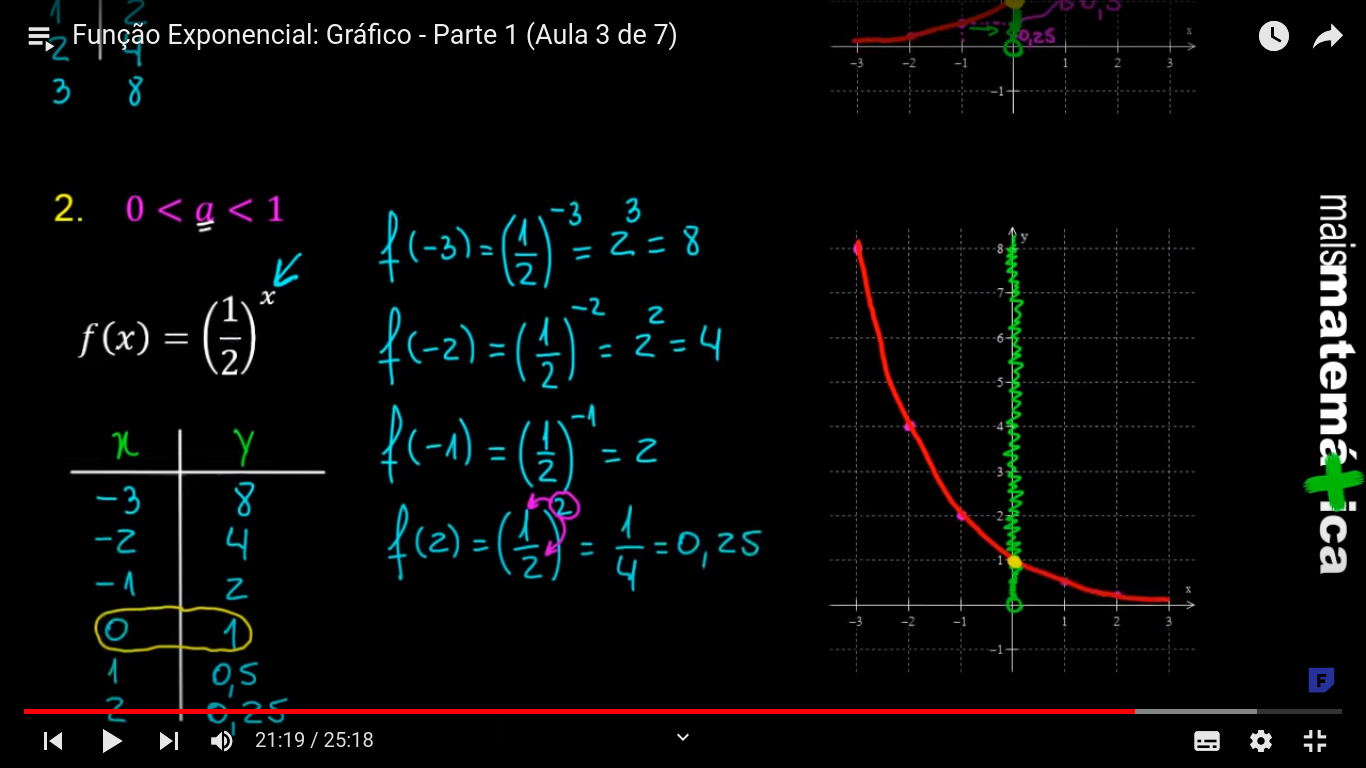 Função Exponencial: Gráfico - Parte 1 (Aula 3 de 7)
1 2
2 4
3 8
0,25
x
-3 -2 -1 1 2 3
-1
2. 0 < a < 1
f(x) = (1/2)^x
x y
-3 8
-2 4
-1 2
0 1
1 0,5
2 0,25
f(-3) = (1/2)^-3 = 2^3 = 8
f(-2) = (1/2)^-2 = 2^2 = 4
f(-1) = (1/2)^-1 = 2
f(2) = (1/2)^2 = 1/4 = 0,25
y
8
7
6
5
4
3
2
1
x
-3 -2 -1 1 2 3
-1
maismatemática
F
21:19 / 25:18